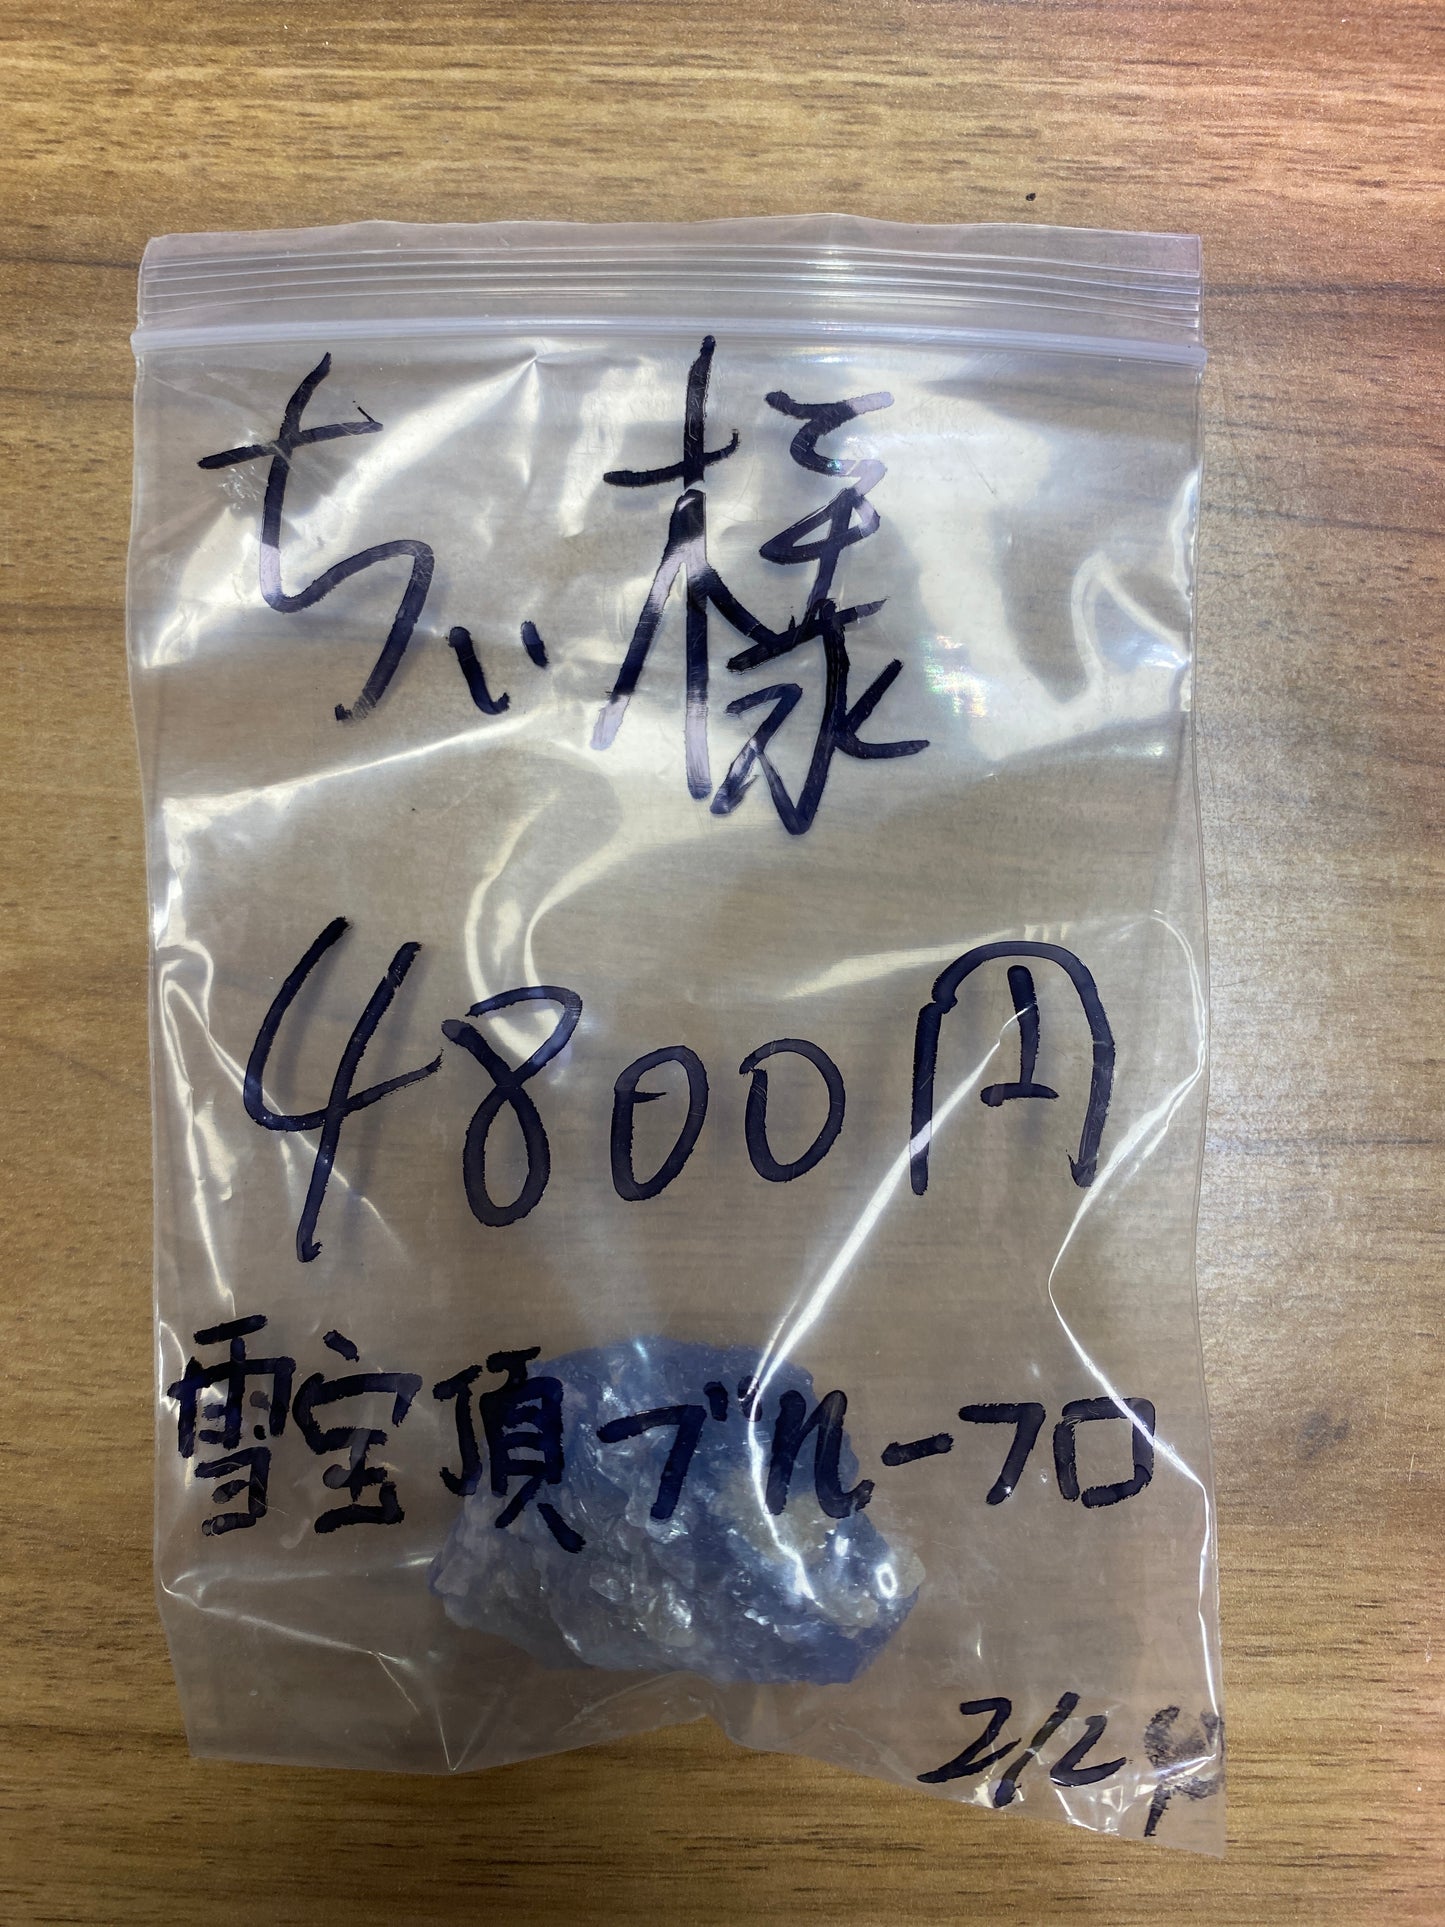 ちい様
4800円
雪宝頂ブルーフロ
2/2